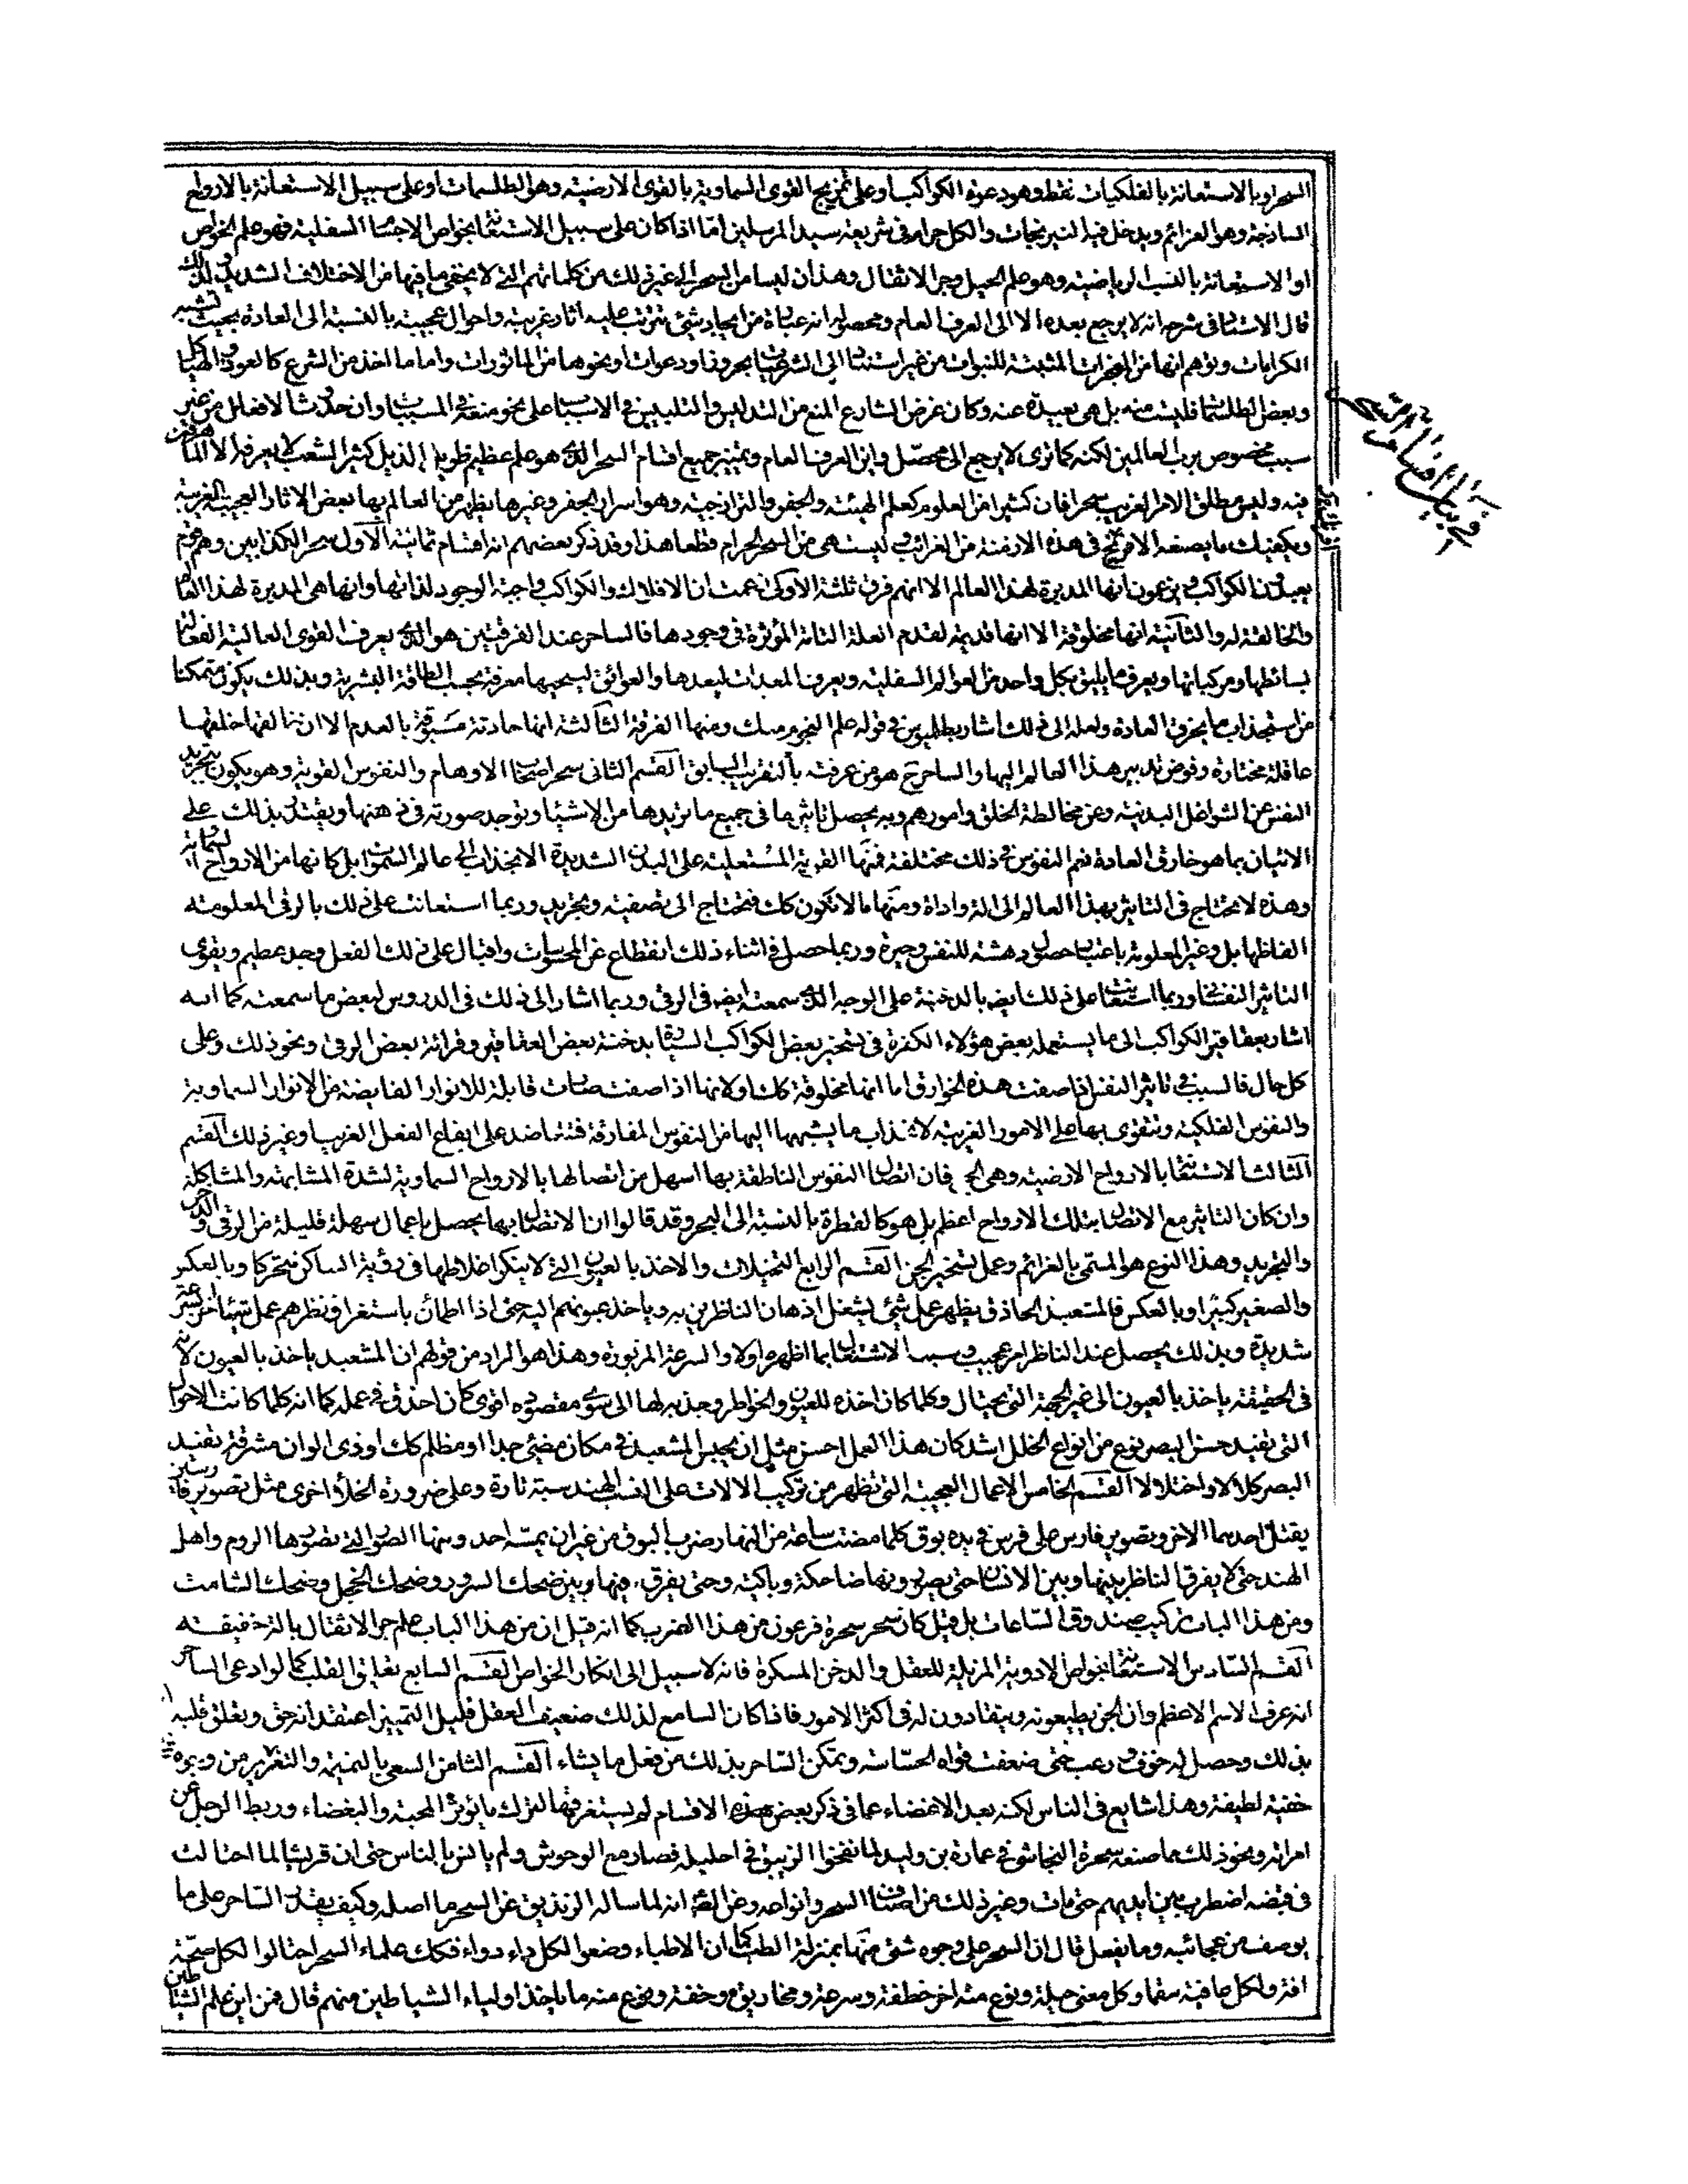 السحر وبالاستعانة بالفلكيات فقط وهو دعوة الكواكب او على تمزيج القوى السماوية بالقوى الارضية وهو الطلسمات او على سبيل الاستعانة بالارواح
الساذجة وهو العزائم ويدخل فيه النيرنجات والكل حرام في شريعة سيد المرسلين اما اذا كان على سبيل الاستعانة بخواص الاجسام السفلية فهو علم الخواص
او الاستعانة بالنسب الرياضية وهو علم الحيل وجر الاثقال وهذان ليسا من السحر الى غير ذلك من كلماتهم التي لا يخفى ما فيها من الاختلاف الشديد ولذلك
قال الاستاد في شرحه انه لا يرجع بعده الا الى العرف العام ومحصوله انه عبارة من ايجاد شئ تترتب عليه اثار غريبة واحوال عجيبة بالنسبة الى العادة بحيث تشبه
الكرامات وتوهم انها من المعجزات المثبتة للنبوات من غير استناد الى الشرعيات بحروز او دعوات او نحوها من الماثورات واما ما اخذ من الشرع كالعوذ والهياكل
وبعض الطلسمات فليست منه بل هي بعيدة عنه وكان غرض الشارع المنع من التدليس والتلبيس في الاسباب على نحو منعه في المسببات وان حدوث الافعال من غير
سبب مخصوص برب العالمين لكنه كما ترى لا يرجع الى محصل واين العرف العام وتمييز جميع اقسام السحر الذي هو علم عظيم طويل الذيل كثير الشعب لا يعرفه الا الماهرون
فيه وليس مطلق الامر الغريب سحرا فان كثيرا من العلوم كعلم الهيئة والجفر والتزارجية وهو اسرار الجفر وغيرها يظهر من العالم بها بعض الاثار العجيبة الغريبة
ويكفيك ما يصنعه الافرنج في هذه الازمنة من الغرائب وليست هي من السحر الحرام قطعا هذا وقد ذكر بعضهم انه اقسام ثمانية الاول سحر الكذابين وهم قوم
يعبدون الكواكب ويزعمون انها المدبرة لهذا العالم الا انهم فرق ثلثة الاولى زعمت ان الافلاك والكواكب واجبة الوجود لذاتها وانها هي المدبرة لهذا العالم
والخالقة له والثانية انها مخلوقة الا انها قديمة لقدم العلة التامة المؤثرة في وجودها فالساحر عند الفرقتين هو الذي يعرف القوى العالية الفعالة
بسائطها ومركباتها ويعرف ما يليق بكل واحد من العوالم السفلية ويعرف المعدات ليعدها والعوائق لينحيها معرفة بحسب الطاقة البشرية وبذلك يكون متمكنا
من استجذاب ما يخرق العادة ولعله الى ذلك اشار بطلميوس في قوله علم النجوم منك ومنها الفرقة الثالثة انها حادثة مسبوقة بالعدم الا ان خالقها خلقها
عاقلة مختارة وفوض تدبير هذا العالم اليها والساحر ح هو من عرفته بالتقريب السابق القسم الثاني سحر اصحاب الاوهام والنفوس القوية وهو يكون بتجريد
النفس عن الشواغل البدنية وعن مخالطة الخلق وامورهم وبه يحصل تاثير ما في جميع ما تريدها من الاشياء وتوجد صورته في ذهنها ويقتدر بذلك على
الاتيان بما هو خارق العادة نعم النفوس في ذلك مختلفة فمنها القوية المستعلية على البدن الشديدة الانجذاب الى عالم السموات بل كانها من الارواح السماوية
وهذه لا تحتاج في التاثير بهذا العالم الى الة واداة ومنها ما لا تكون كك فتحتاج الى تصفية وتجريد وربما استعانت على ذلك بالرقى المعلومة
الفاظها بل وغير المعلومة باعتبار حصول دهشة للنفس وحيرة وربما حصل في اثناء ذلك انقطاع عن المحسوسات واقبال على ذلك الفعل وجد عظيم ويقوى
التاثير النفساني وربما استعانت على ذلك ايضا بالدخنة على الوجه الذي سمعته ايض في الرقى وربما اشار الى ذلك في الدروس لبعض ما سمعته كما انه
اشار بعقاقير الكواكب الى ما يستعمله بعض هؤلاء الكفرة في تسخير بعض الكواكب السيارة بدخنة بعض العقاقير وقرائة بعض الرقى ونحو ذلك وعلى
كل حال فالسبب في تاثير النفس اذا صفت هذه الخوارق اما انها مخلوقة كك او لانها اذا صفت صارت قابلة للانوار الفايضة من الانوار السماوية
والنفوس الفلكية وتتقوى بها على الامور الغريبة لانجذاب ما يشبهها اليها من النفوس المفارقة فتتعاضد على ايقاع الفعل الغريب او غير ذلك القسم
الثالث الاستعانة بالارواح الارضية وهي الجن فان اتصال النفوس الناطقة بها اسهل من اتصالها بالارواح السماوية لشدة المشابهة والمشاكلة
وان كان التاثير مع الاتصال بتلك الارواح اعظم بل هو كالقطرة بالنسبة الى البحر وقد قالوا ان الاتصال بها يحصل باعمال سهلة قليلة من الرقى والدخن
والتجريد وهذا النوع هو المسمى بالعزائم وعمل تسخير الجن القسم الرابع التخيلات والاخذ بالعيون التي لا ينكر اغلاطها في رؤية الساكن متحركا وبالعكس
والصغير كبيرا وبالعكس فالمتعبد الحاذق يظهر عمل شئ يشغل اذهان الناظرين به وياخذ عيونهم اليه حتى اذا اطمان باستغراق نظرهم عمل شيئا اخر بسرعة
شديدة وبذلك يحصل عند الناظر امر عجيب وسببه الاشتغال بما اظهره اولا والسرعة المزبورة وهذا هو المراد من قولهم ان المشعبد ياخذ بالعيون لانه
في الحقيقة ياخذ بالعيون الى غير الجهة التي يحتال وكلما كان اخذه للعيون والخواطر وجذبه لها الى سوى مقصوده اقوى كان احذق في عمله كما انه كلما كانت الاحوال
التي تفيد حس البصر نوع من انواع الخلل اشد كان هذا العمل احسن مثل ان يجلس المشعبد في مكان مضئ جدا او مظلم كك او ذى الوان مشرقة تفيد
البصر كلالا واختلالا القسم الخامس الاعمال العجيبة التي تظهر من تركيب الالات على النسب الهندسية تارة وعلى ضرورة الخلأ اخرى مثل تصوير فارسين
يقتل احدهما الاخر وتصوير فارس على فرس في يده بوق كلما مضت ساعة من النهار ضرب البوق من غير ان يمسه احد ومنها الصور التي تصورها الروم واهل
الهند حتى لا يفرق الناظر بينها وبين الانسان حتى يصورونها ضاحكة وباكية وحتى يفرق فيها وبين ضحك السرور وضحك الخجل وضحك الشامت
ومن هذا الباب تركيب صندوق الساعات بل قيل كان سحر سحرة فرعون من هذا الضرب كما انه قيل ان من هذا الباب علم جر الاثقال بالات خفيفة
القسم السادس الاستعانة بخواص الادوية المزيلة للعقل والدخن المسكرة فانه لا سبيل الى انكار الخواص القسم السابع تعليق القلب كما لو ادعى الساحر
انه عرف الاسم الاعظم وان الجن يطيعونه وينقادون له في اكثر الامور فاذا كان السامع لذلك ضعيف العقل قليل التمييز اعتقد انه حق وتعلق قلبه
بذلك وحصل له خوف ورعب حتى ضعفت قواه الحساسة وتمكن الساحر بذلك من فعل ما يشاء القسم الثامن السعي بالنميمة والتغرير من وجوه
خفية لطيفة وهذا شايع في الناس لكنه بعد الاغضاء عما في ذكر بعض هذه الاقسام لم يستغرقها لترك ما يؤثر المحبة والبغضاء وربط الرجل عن
امراته ونحو ذلك مما صنعه سحرة النجاشي في عمارة بن وليد لما نفخوا الزيبق في احليله فصار مع الوحوش ولم يانس بالناس حتى ان قريشا لما احتالت
في قبضه اضطرب بين ايديهم حتى مات وغير ذلك من اصناف السحر وانواعه وعن الصادق انه لما ساله الزنديق عن السحر ما اصله وكيف يقدر الساحر على ما
يوصف من عجائبه وما يفعل قال ان السحر على وجوه شتى منها بمنزلة الطب كما ان الاطباء وضعوا لكل داء دواء فكك علماء السحر احتالوا لكل صحة
افة ولكل عافية سقما وكل معنى حيلة ونوع منه اخر خطفة وسرعة ومخاريق وخفة ونوع منه ما ياخذ اولياء الشياطين منهم قال فمن اين علم الشياطين